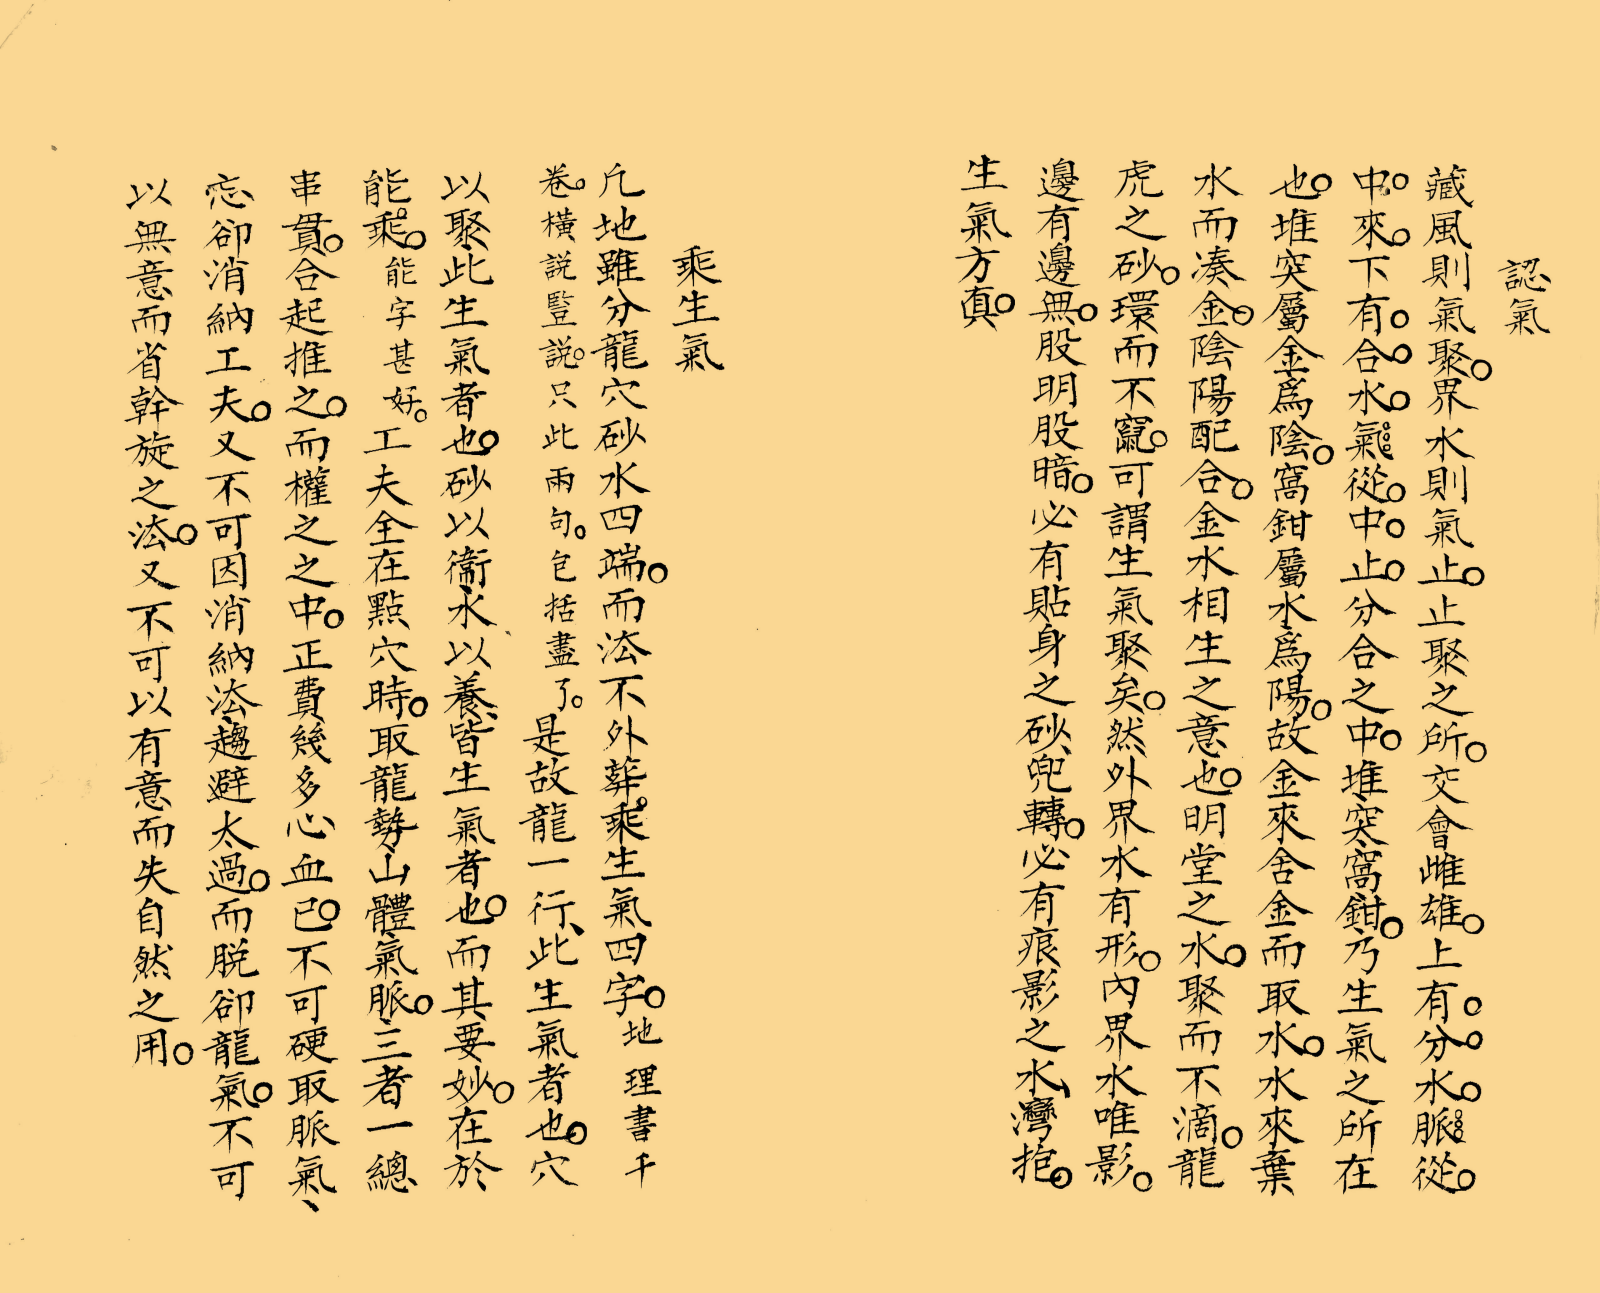 認氣
藏風則氣聚。界水則氣止。止聚之所。交會雌雄。上有。分。水。脈。從。
中。來。下有。合。水。氣。從。中。止。分合之中。堆突窩鉗。乃生氣之所在
也。堆突屬金爲陰。窩鉗屬水爲陽。故金來舍金而取水。水來棄
水而湊金。陰陽配合。金水相生之意也。明堂之水。聚而不滴。龍
虎之砂。環而不竄。可謂生氣聚矣。然外界水有形。內界水唯影。
邊有邊無。股明股暗。必有貼身之砂、兜轉。必有痕影之水、灣抱。
生氣方真。
乘生氣
凢地雖分龍穴砂水四端。而法不外葬。乘生氣四字。地理書千
卷。橫説豎説。只此兩句。包括盡了。是故龍一行、此生氣者也。穴
以聚此生氣者也。砂以衞水以養、皆生氣者也。而其要妙。在於
能乘。能字甚好。工夫全在點穴時。取龍勢山體氣脈。三者一總
串貫。合起推之。而權之之中。正費幾多心血。已不可硬取脈氣、
忘卻消納工夫。又不可因消納法趨避太過。而脱卻龍氣。不可
以無意而省斡旋之法。又不可以有意而失自然之用。